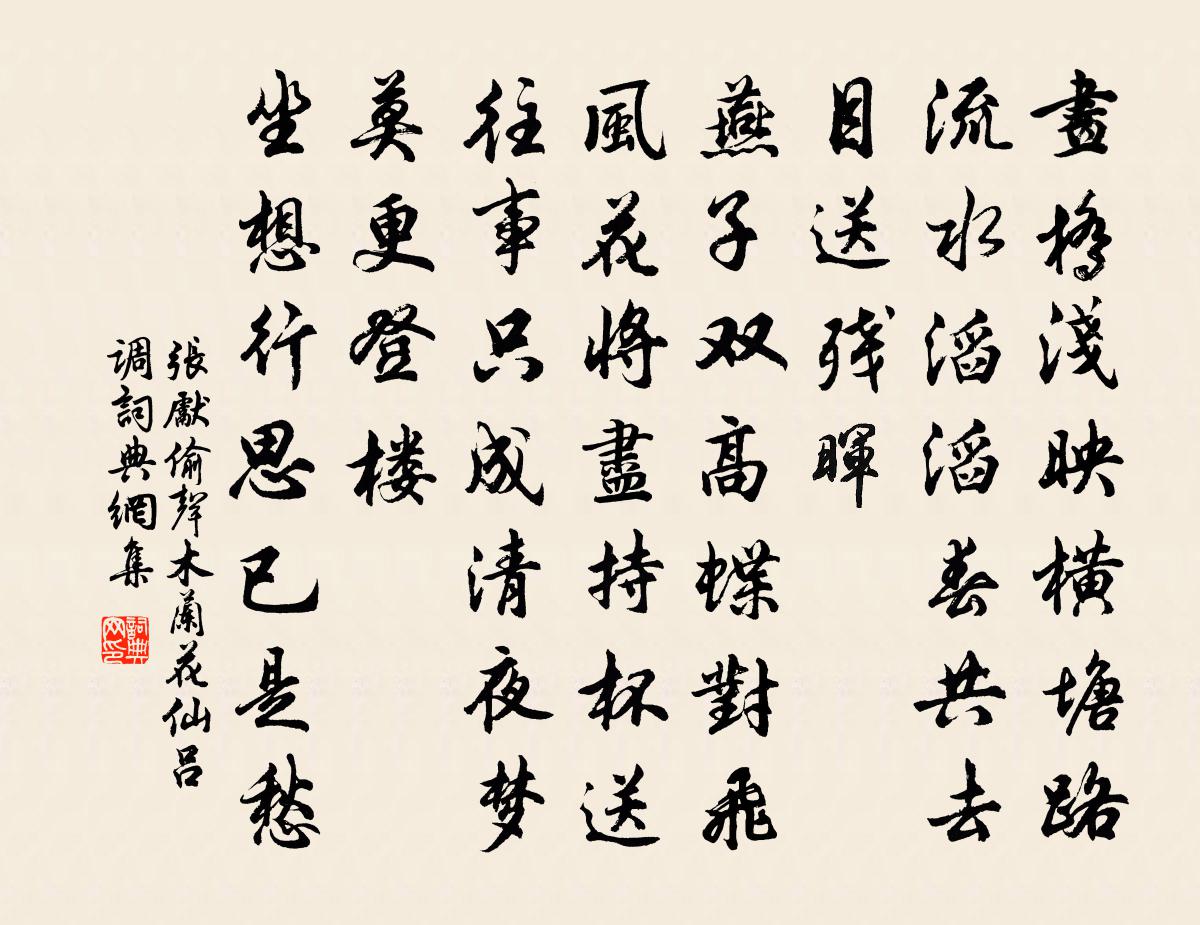 畫橋淺映橫塘路
流水滔滔春共去
目送残暉
燕子双高蝶對飛
風花将盡持杯送
往事只成清夜梦
莫更登楼
坐想行思已是愁
張獻偷聲木蘭花仙呂
调詞典網集
詞典
网印